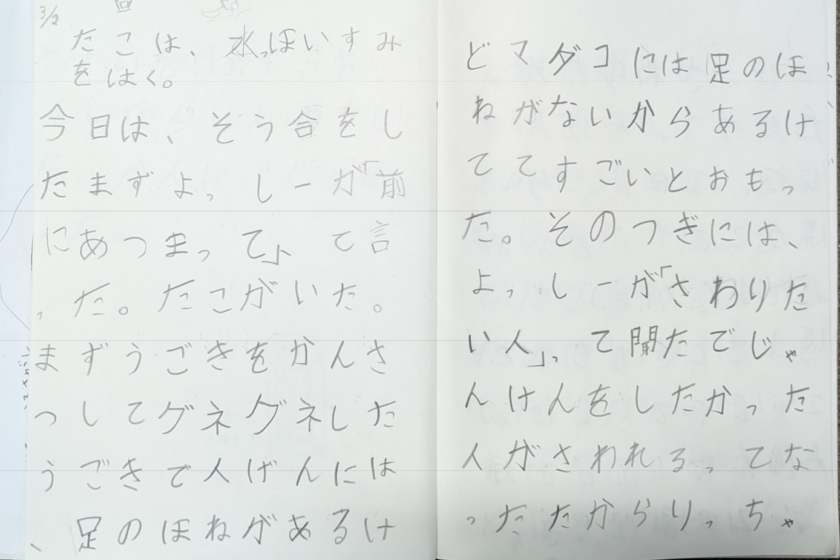 3/2
たこは、水っぽいすみ
をはく。
今日は、そう合をし
たまずよっしーが「前
にあつまって」、て言
った。たこがいた。
まずうごきをかんさ
つしてグネグネした
うごきで人げんには
、足のほねがあるけ
どマダコには足のほ
ねがないからあるけ
ててすごいとおもっ
た。そのつぎには、
よっしーが「さわりた
い人」って聞たでじゃ
んけんをしたかった
人がさわれるってな
ったたからりっちゃ